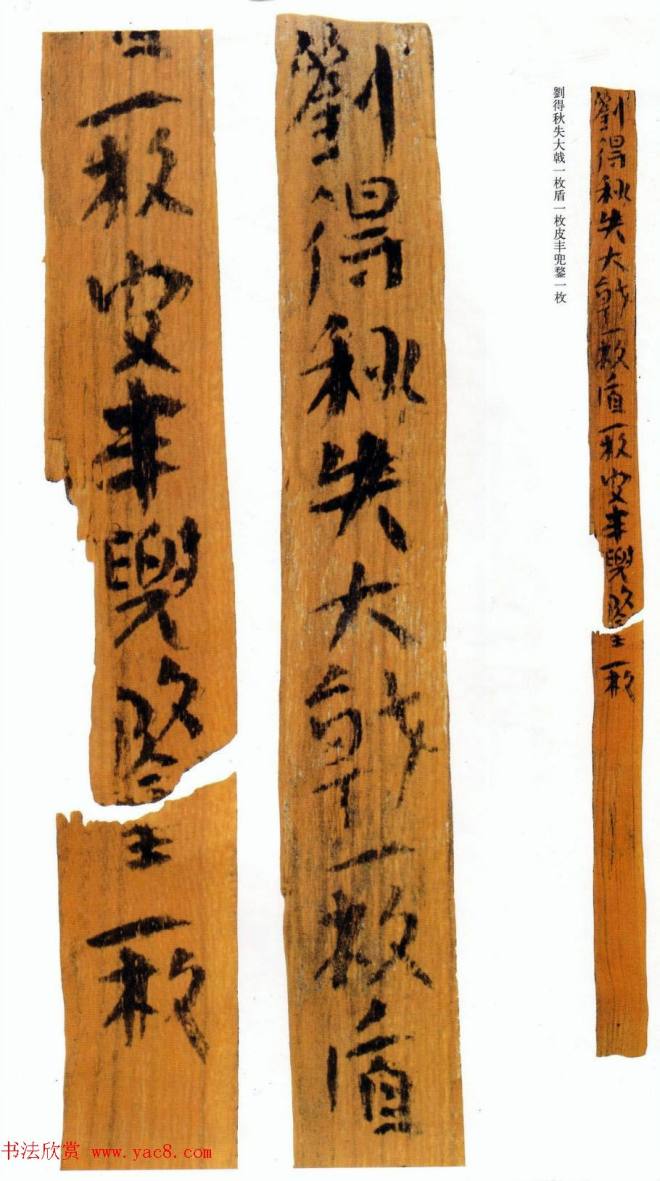 劉得秋失大戟一枚盾一枚皮丰兜鍪一枚
劉得秋失大戟一枚盾一枚皮丰兜鍪一枚
劉得秋失大戟一枚盾
盾一枚皮丰兜鍪一枚
书法欣赏 www.yac8.com